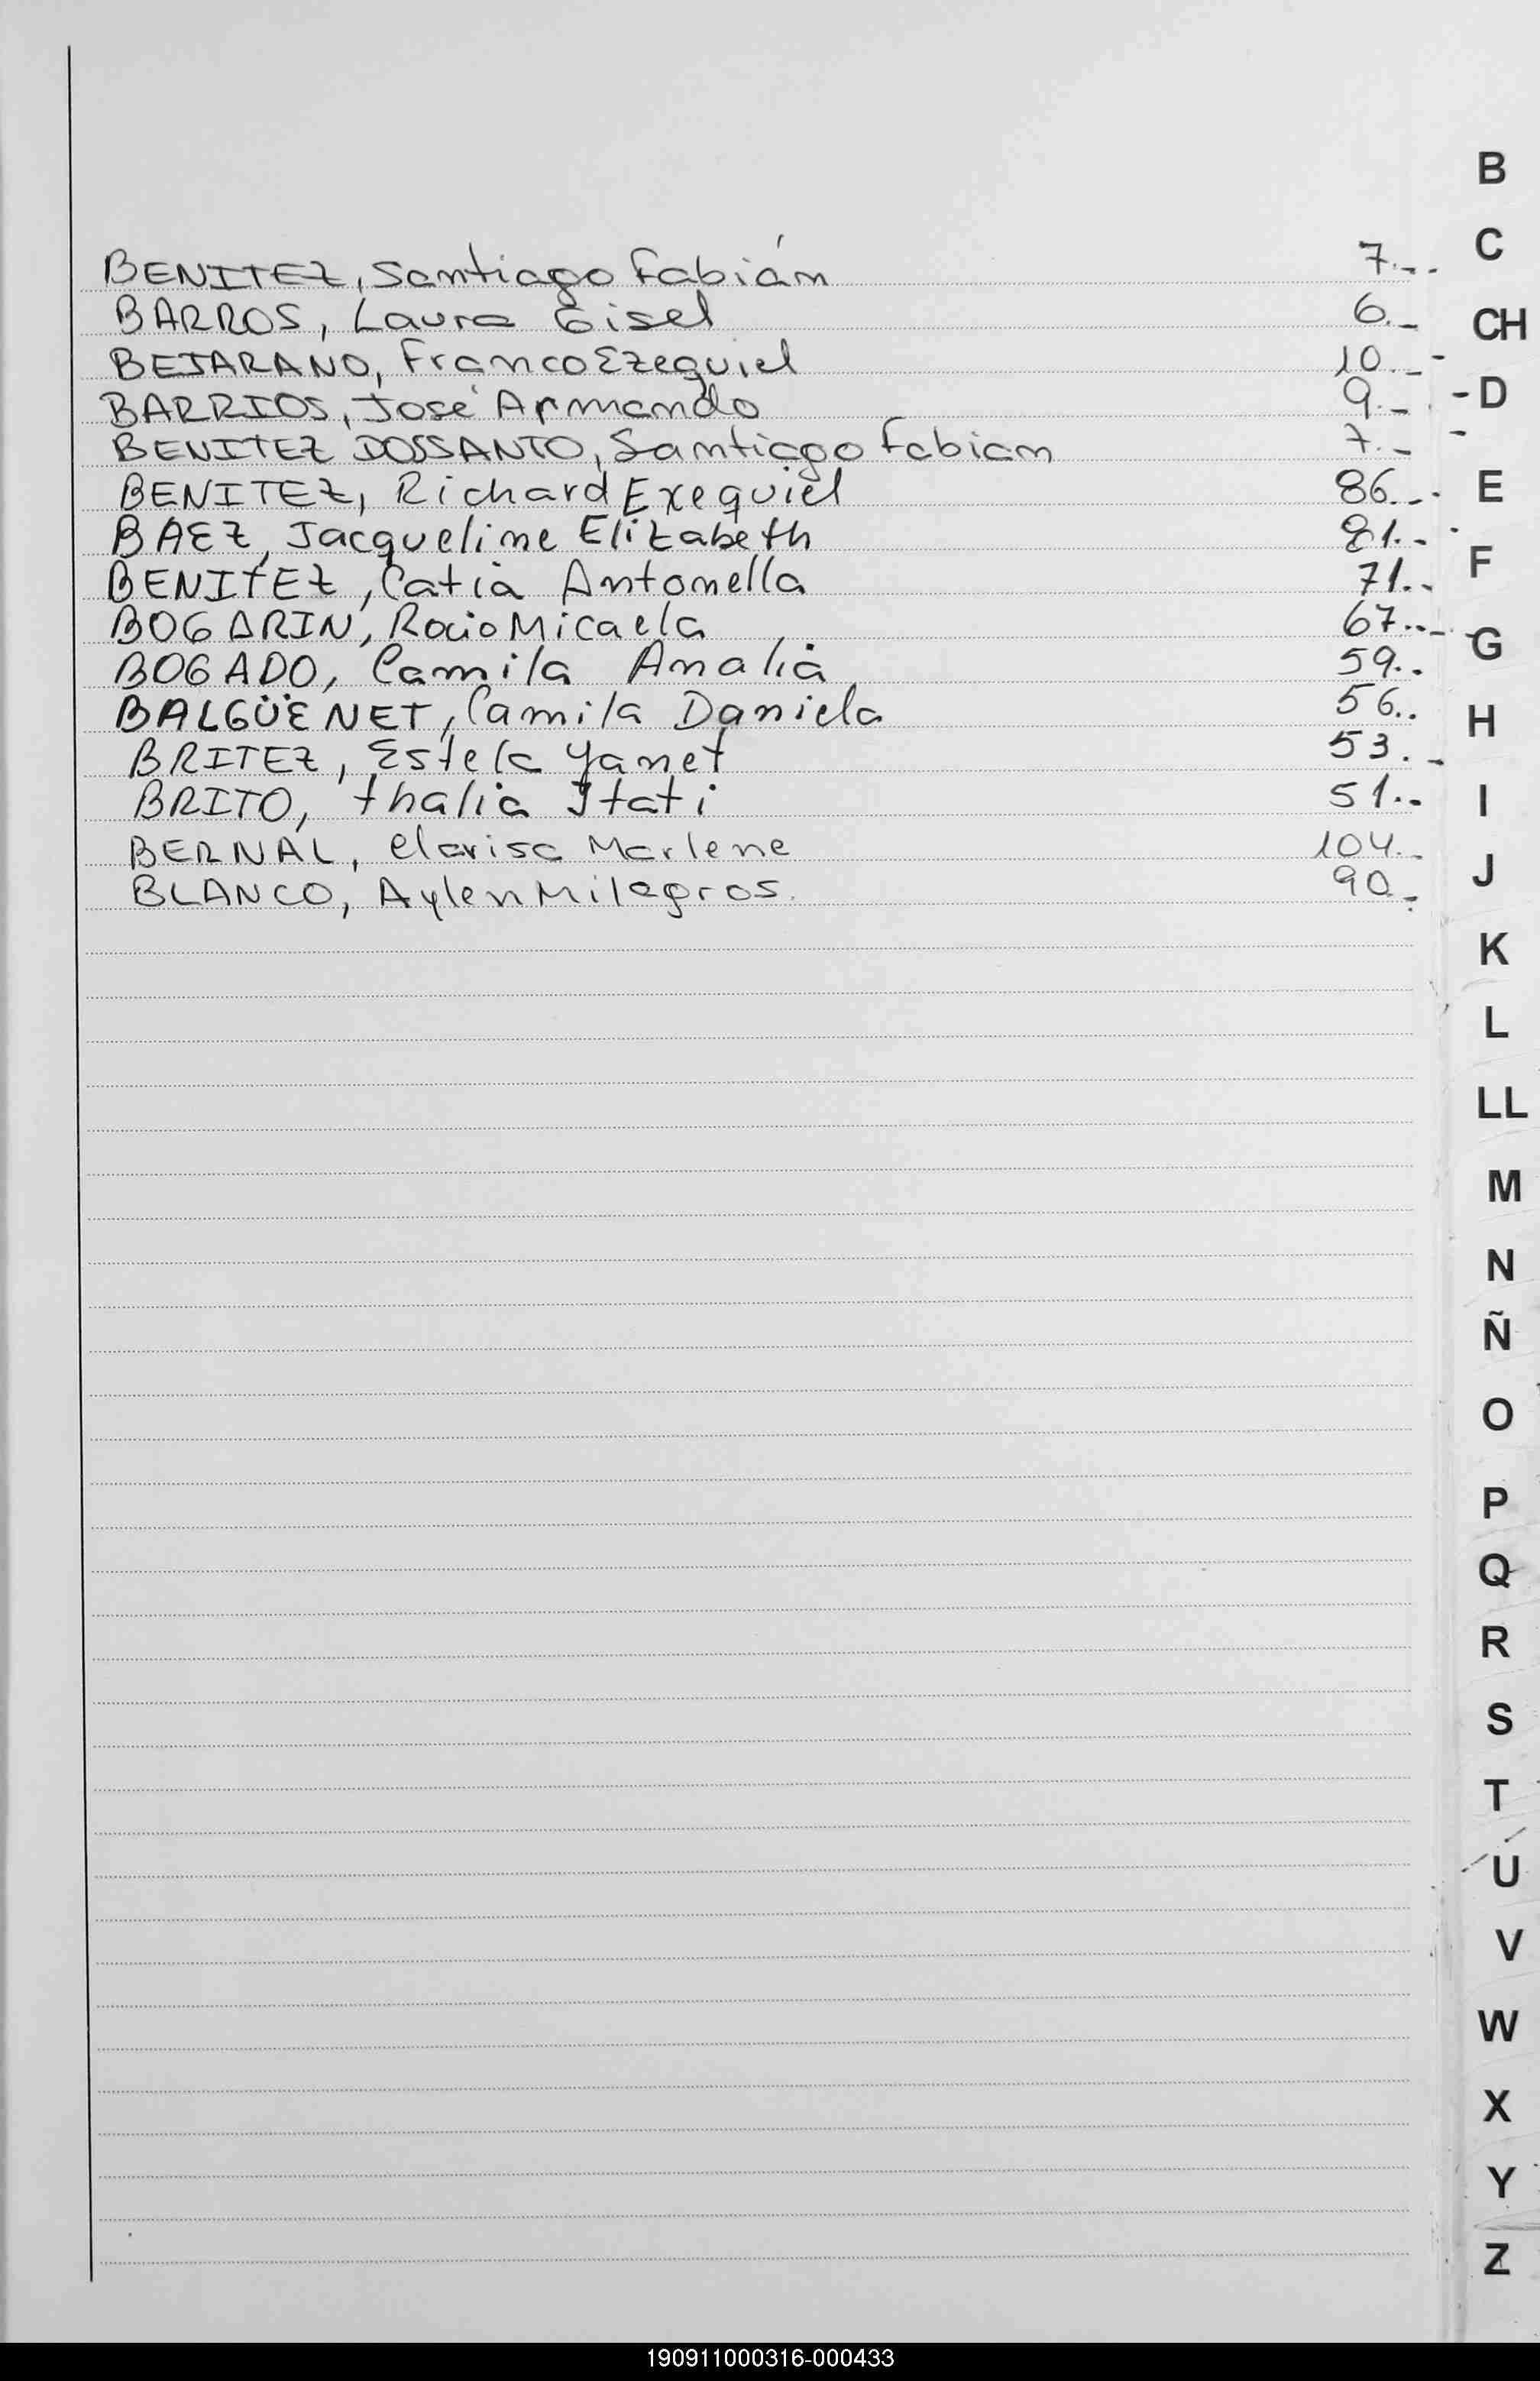 BENITEZ, Santiago Fabián 7.--
BARROS, Laura Gisel 6.-
BEJARANO, Franco Ezequiel 10.--
BARRIOS, José Armando 9.-
BENITEZ DOSSANTO, Santiago Fabian 7.-
BENITEZ, Richard Exequiel 86.-.
BAEZ, Jacqueline Elizabeth 81.-
BENITEZ, Catia Antonella 71.-
BOGARIN, Rocio Micaela 67..-
BOGADO, Camila Analia 59..
BALGÜENET, Camila Daniela 56..
BRITEZ, Estela Yanet 53.-
BRITO, thalia Itati 51.-
BERNAL, Clarisa Marlene 104.-
BLANCO, Aylen Milagros. 90.-
B
C
CH
D
E
F
G
H
I
J
K
L
LL
M
N
Ñ
O
P
Q
R
S
T
U
V
W
X
Y
Z
190911000316-000433